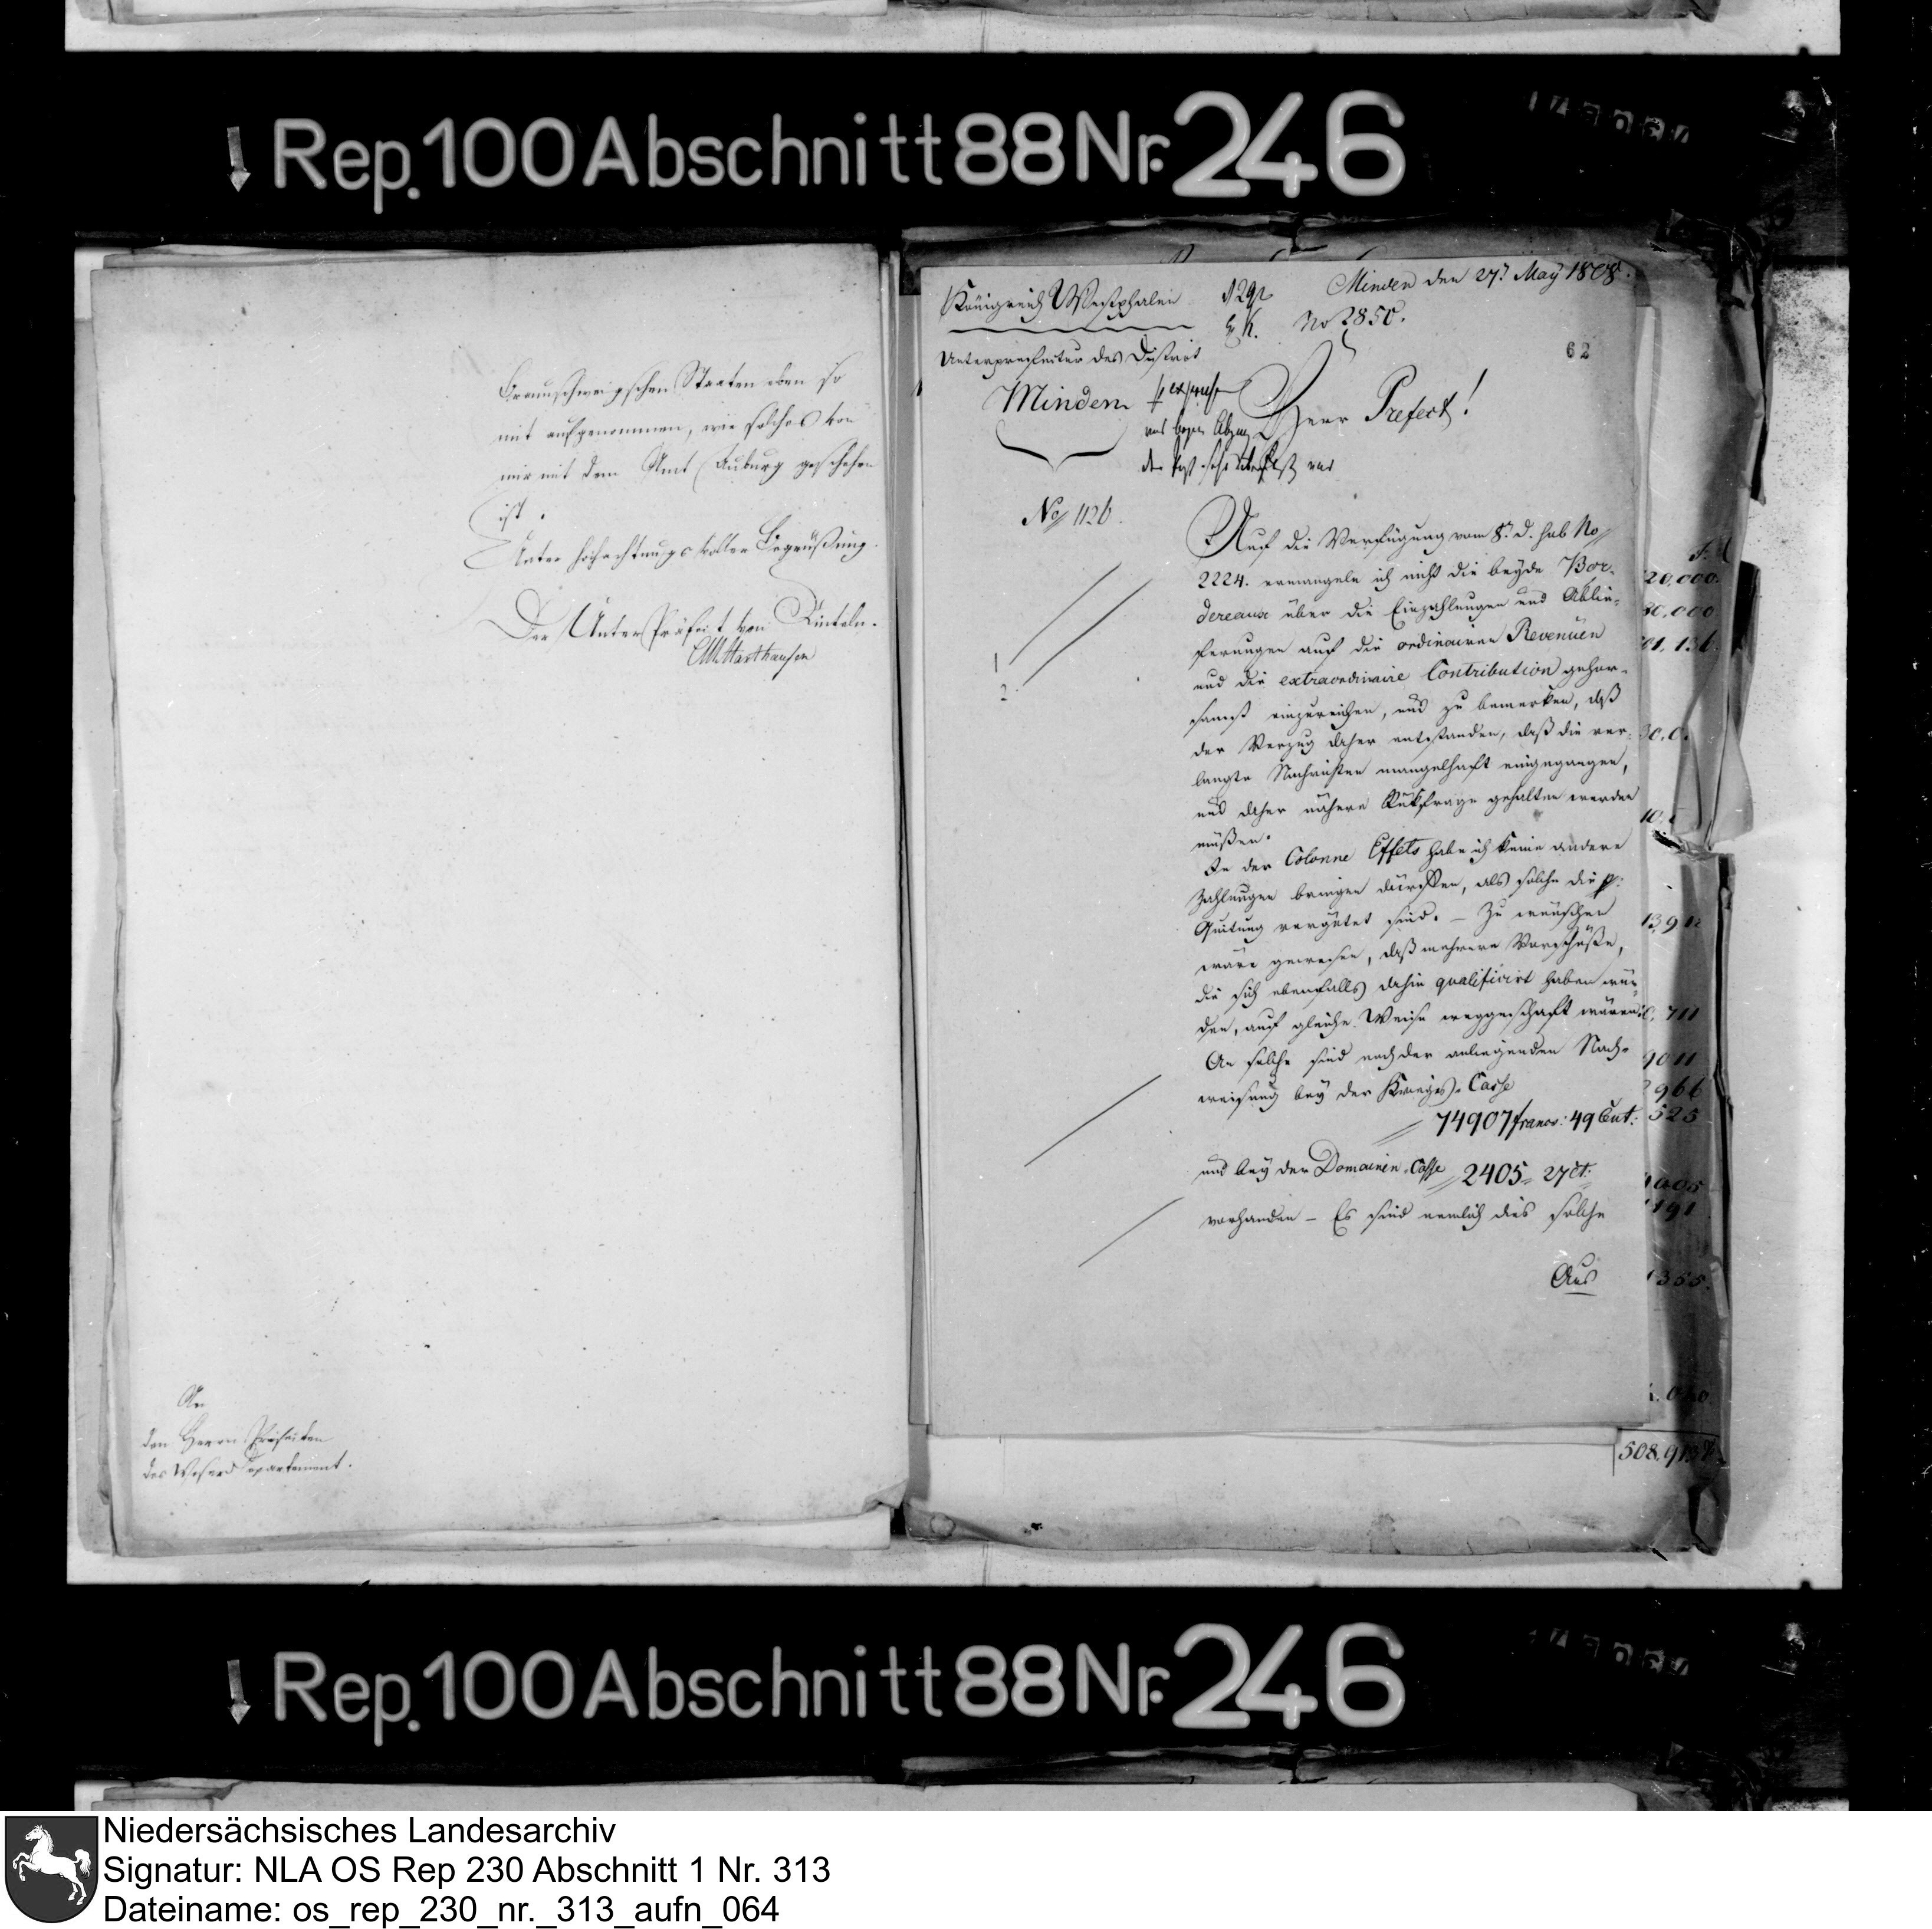 Rep. 100 Abschnitt 88 Nr. 246
Braunschweigschen Staaten eben so
mit aufgenommen, wie solches von
mir mit dem Amt Auburg geschehen
ist.
Unter hochachtungsvoller Begrüßung.
Der Unter Präfect von Rinteln.
An
den Herrn Präfecten
des Weser Departement.
Königreich Westphalen
Unterprefectur des District
Minden
Minden den 27t May 1808.
No 2850.
62
Herr Prefect!
No 1126.
Auf die Verfügung vom 8t d. hab No
2224. ermangele ich nicht die beyde Bor-
dereaux über die Einzahlungen und Ablie-
ferungen auf die ordinairen Revenüen
und die extraordinaire Contribution gehor-
samst einzureichen, und zu bemerken, daß
der Verzug daher entstanden, daß die ver-
langte Nachrichten mangelhaft eingegangen,
und daher nähere Rükfrage gehalten werden
müßen.
In der Colonne Effets habe ich keine andere
Zahlungen bringen dürffen, als solche die p.
Quitung vergütet sind. – Zu wünschen
wäre gewesen, daß mehrere Vorschüße,
die sich ebenfalls dahin qualificirt haben wür-
den, auf gleiche Weise weggeschaft wären
An solche sind nach der anliegenden Nach-
weisung bey der Krieges-Casse
74907 francs: 49 Cent:
und bey der Domainen-Casse 2405 27 ct.
vorhanden – Es sind nemlich dies solche
Aus
1
2
Rep. 100 Abschnitt 88 Nr. 246
Niedersächsisches Landesarchiv
Signatur: NLA OS Rep 230 Abschnitt 1 Nr. 313
Dateiname: os_rep_230_nr._313_aufn_064